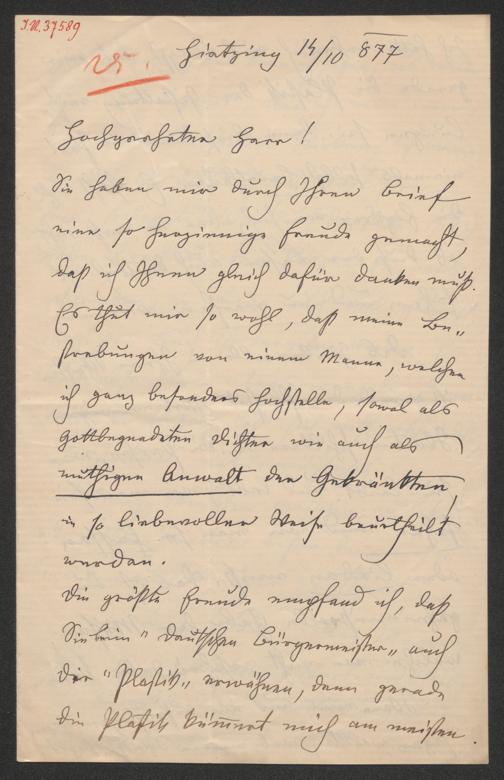 I.N. 37589
Hietzing 14/10 877
Hochgeehrter Herr!
Sie haben mir durch Ihren Brief
eine so herzinnige Freude gemacht,
daß ich Ihnen gleich dafür danken muß.
Es thut mir so wohl, daß meine Be„
strebungen von einem Manne, welchen
ich ganz besonders hochstelle, sowol als
gottbegnadeten Dichter wie auch als
muthigen Anwalt der Gekränkten,
in so liebevoller Weise beurtheilt
werden.
Die größte Freude empfand ich, daß
Sie beim "deutschen Bürgermeister„ auch
die "Plastik„ erwähnen, denn gerade
die Plastik kümmert mich am meisten.